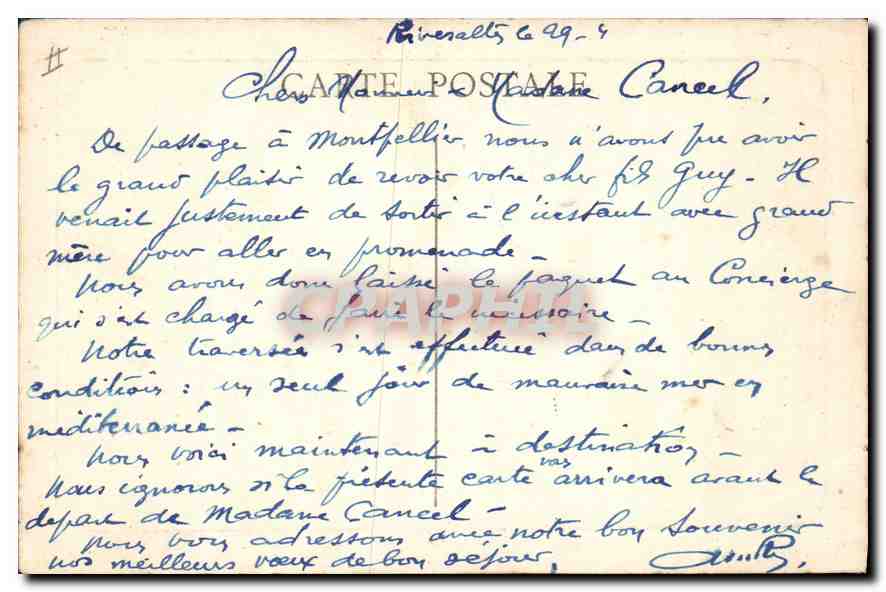 Rivesaltes le 29-4
CARTE POSTALE
Chers Monsieur - Madame Cancel,
De passage à Montpellier nous n'avons pu avoir
le grand plaisir de revoir votre cher fils Guy - Il
venait justement de sortir à l'instant avec grand
mère pour aller en promenade -
Nous avons donc laissé le paquet au Concierge
qui s'est chargé de faire le nécessaire -
Notre traversée s'est effectuée dans de bonnes
conditions : un seul jour de mauvaise mer en
méditerranée -
Nous voici maintenant à destination
Nous ignorons si la présente carte vous arrivera avant le
départ de Madame Cancel -
Nous vous adressons avec notre bon souvenir
nos meilleurs vœux de bon séjour.
CPAPHIL